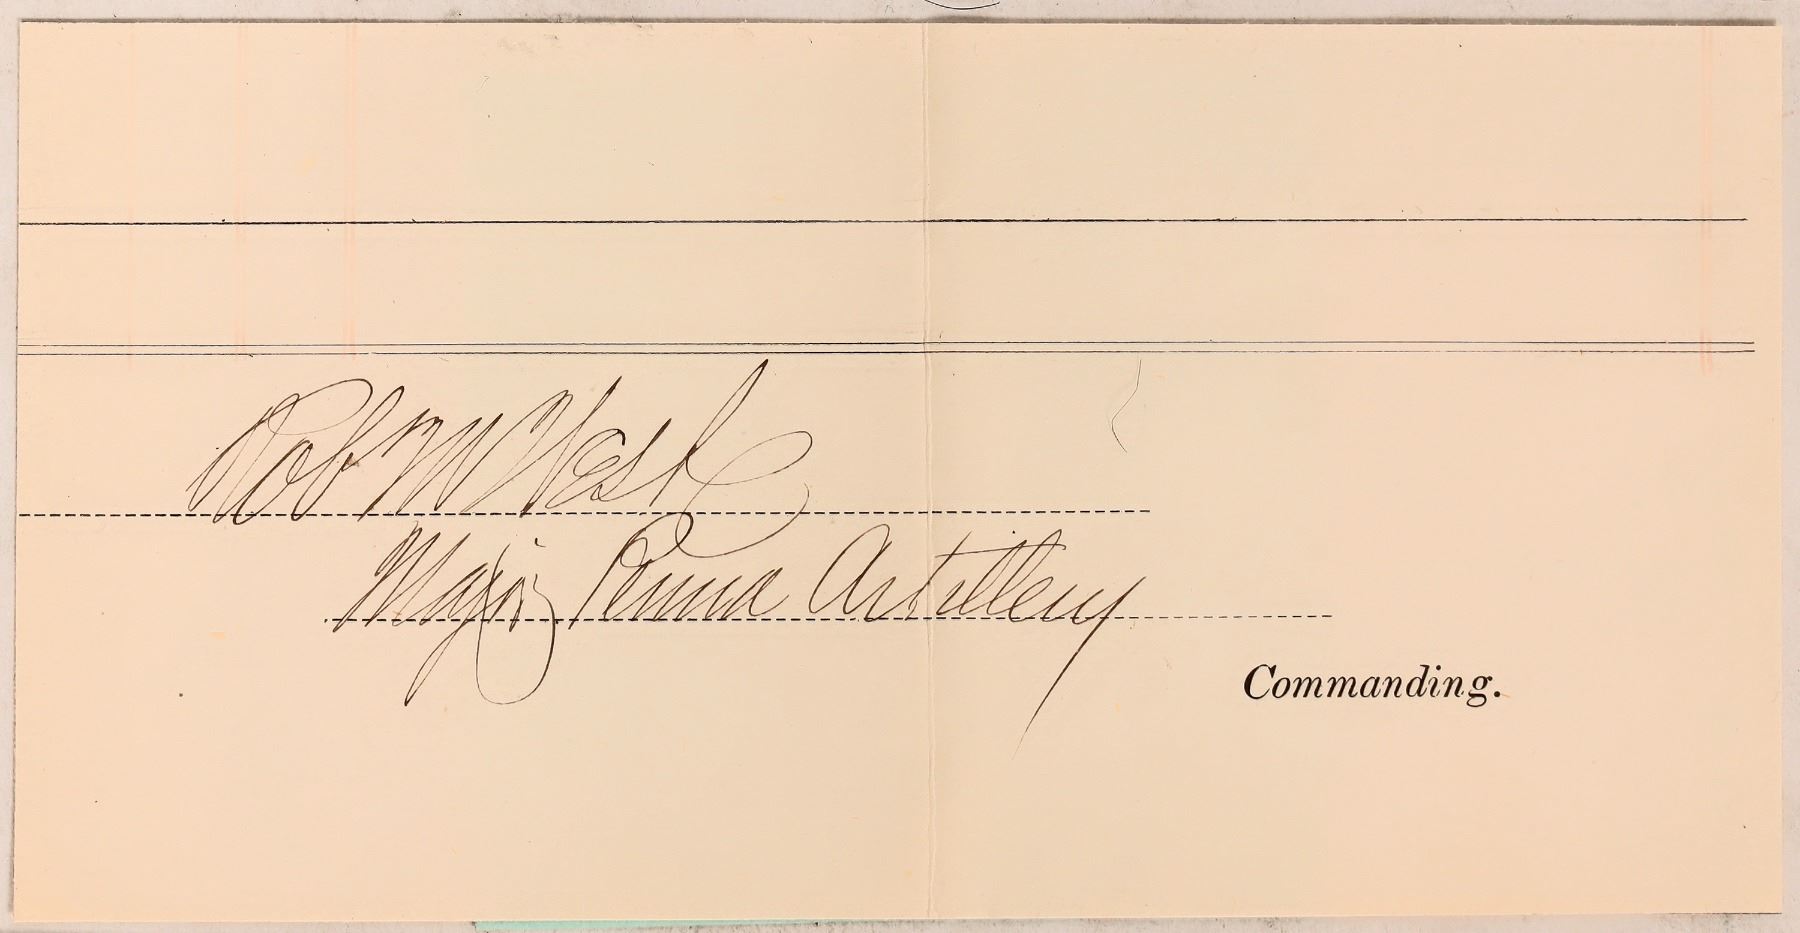 Rob M West
Major Penna Artillery
Commanding.